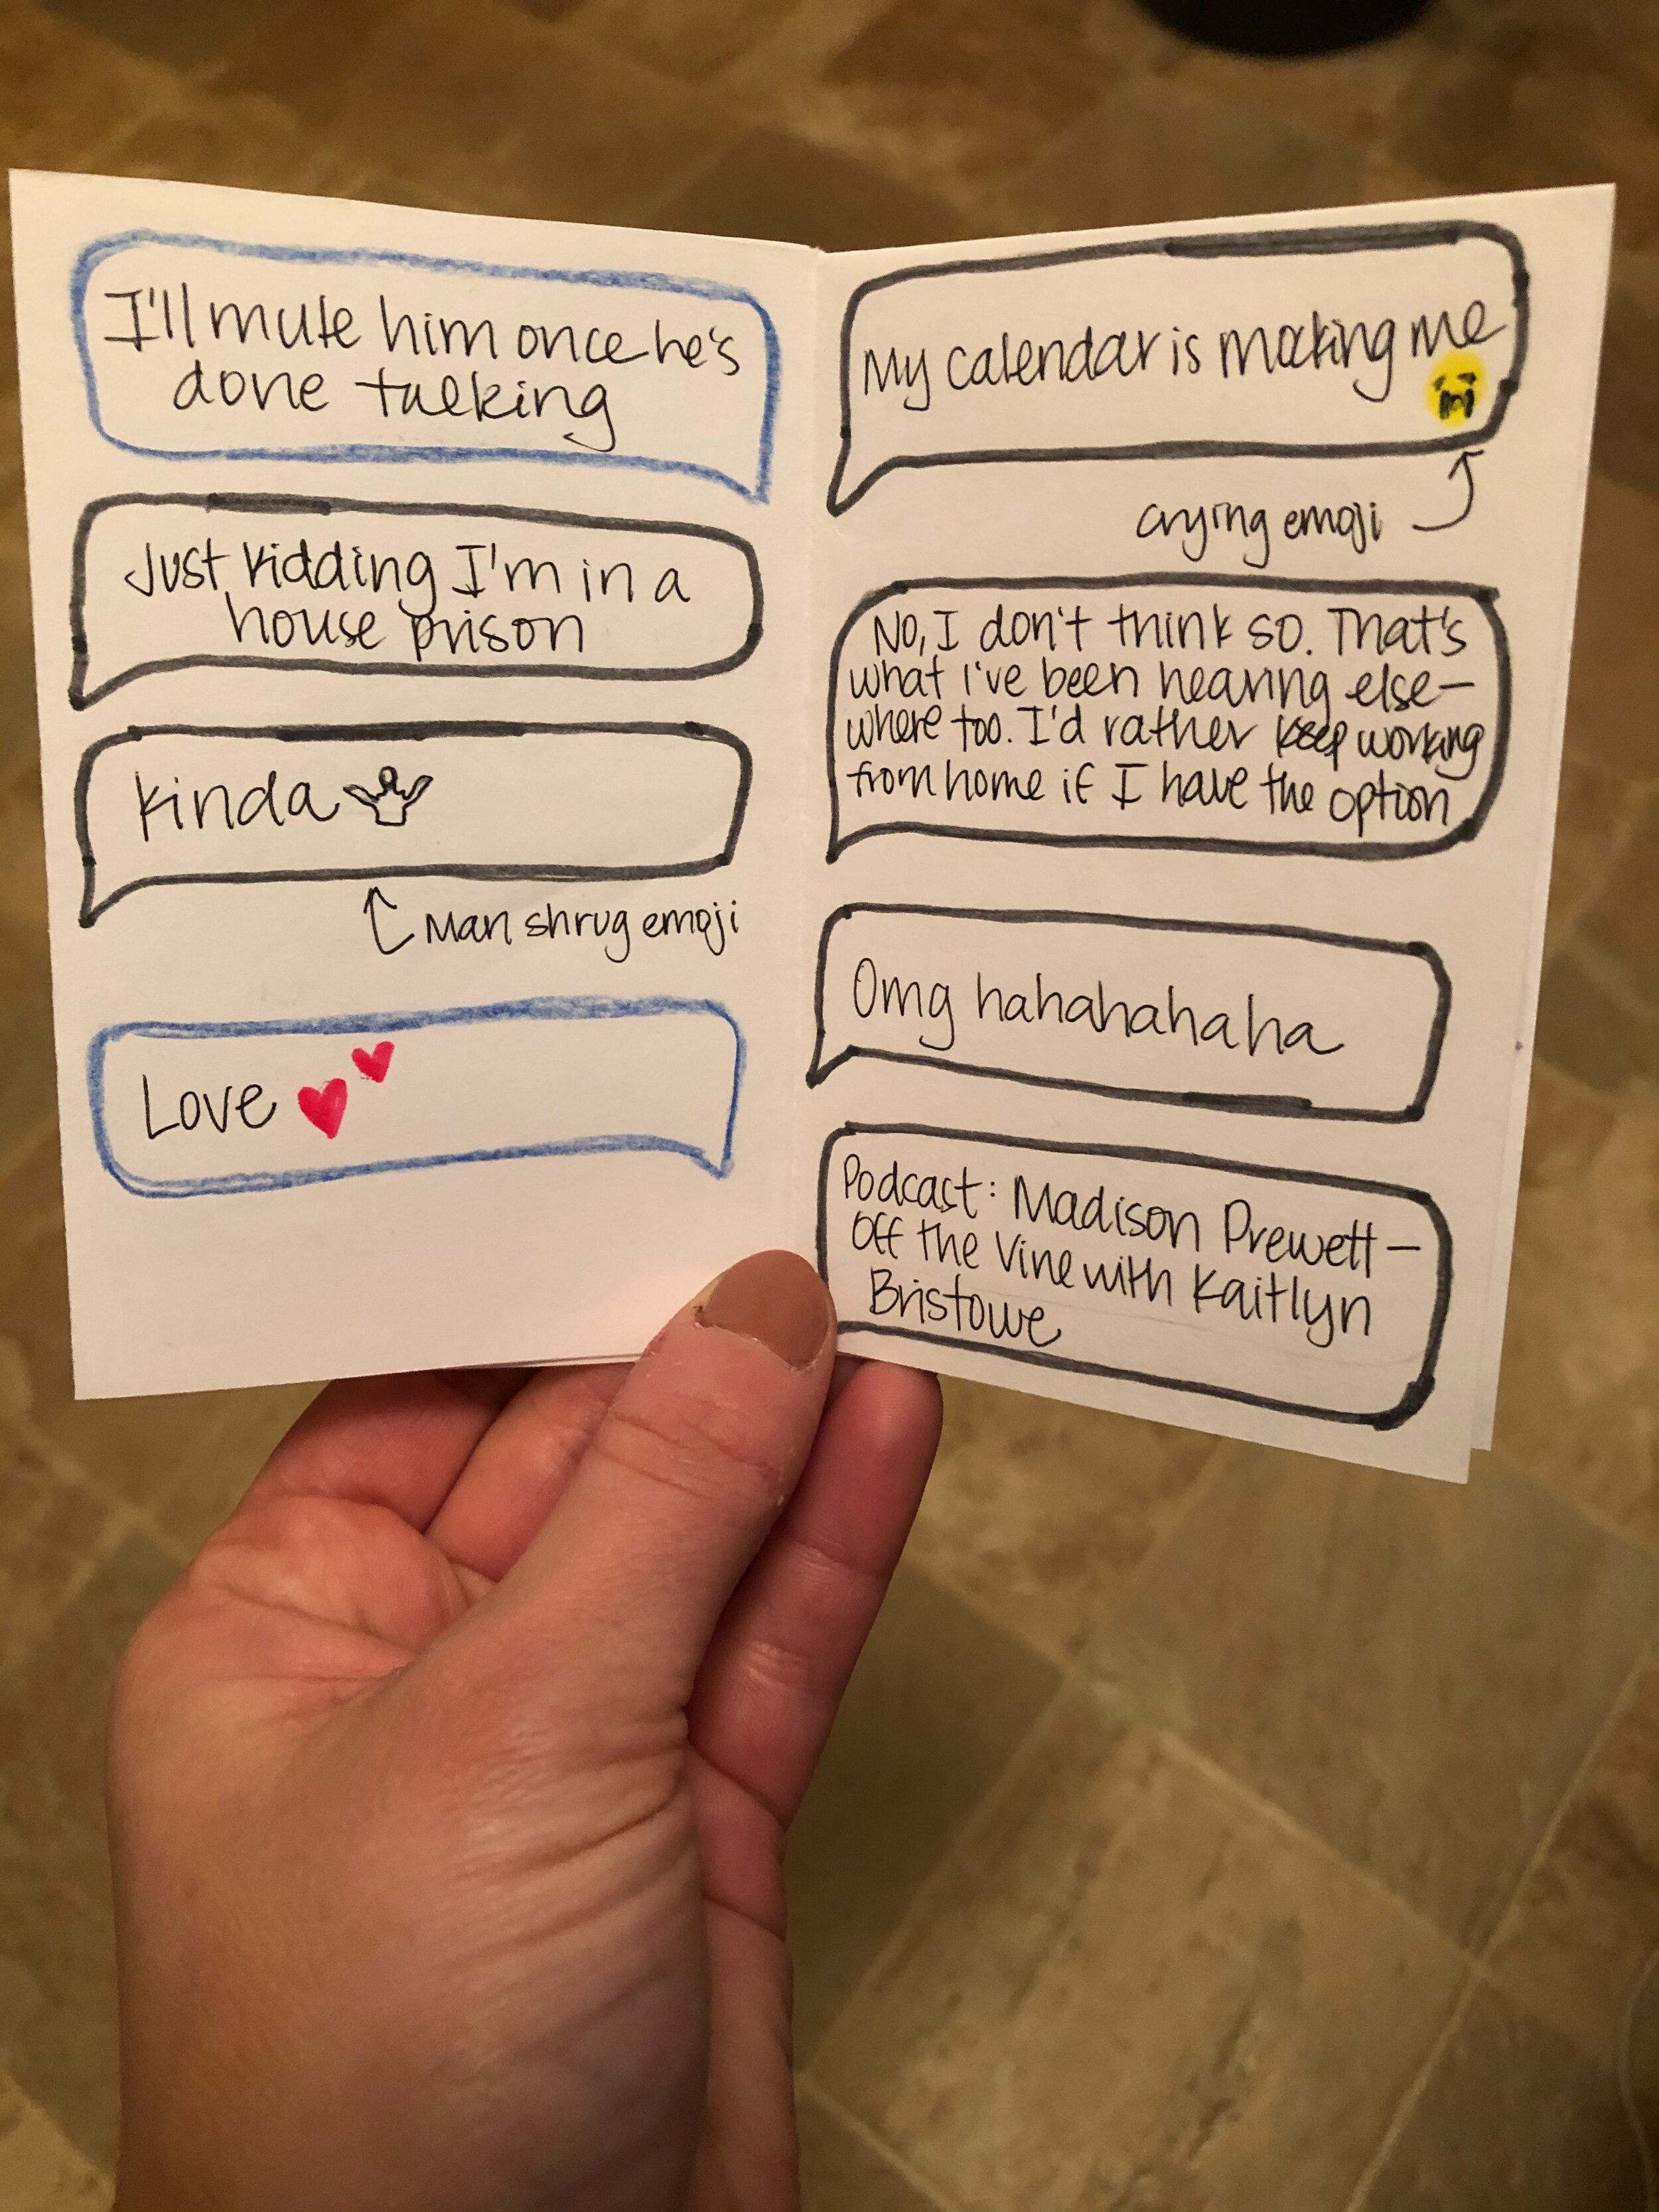 I'll mute him once he's
done talking
Just kidding I'm in a
house prison
kinda
Man shrug emoji
Love
My calendar is mocking me
crying emoji
No, I don't think so. That's
what I've been hearing else-
where too. I'd rather keep working
from home if I have the option
Omg hahahahaha
Podcast: Madison Prewett -
Off the Vine with Kaitlyn
Bristowe